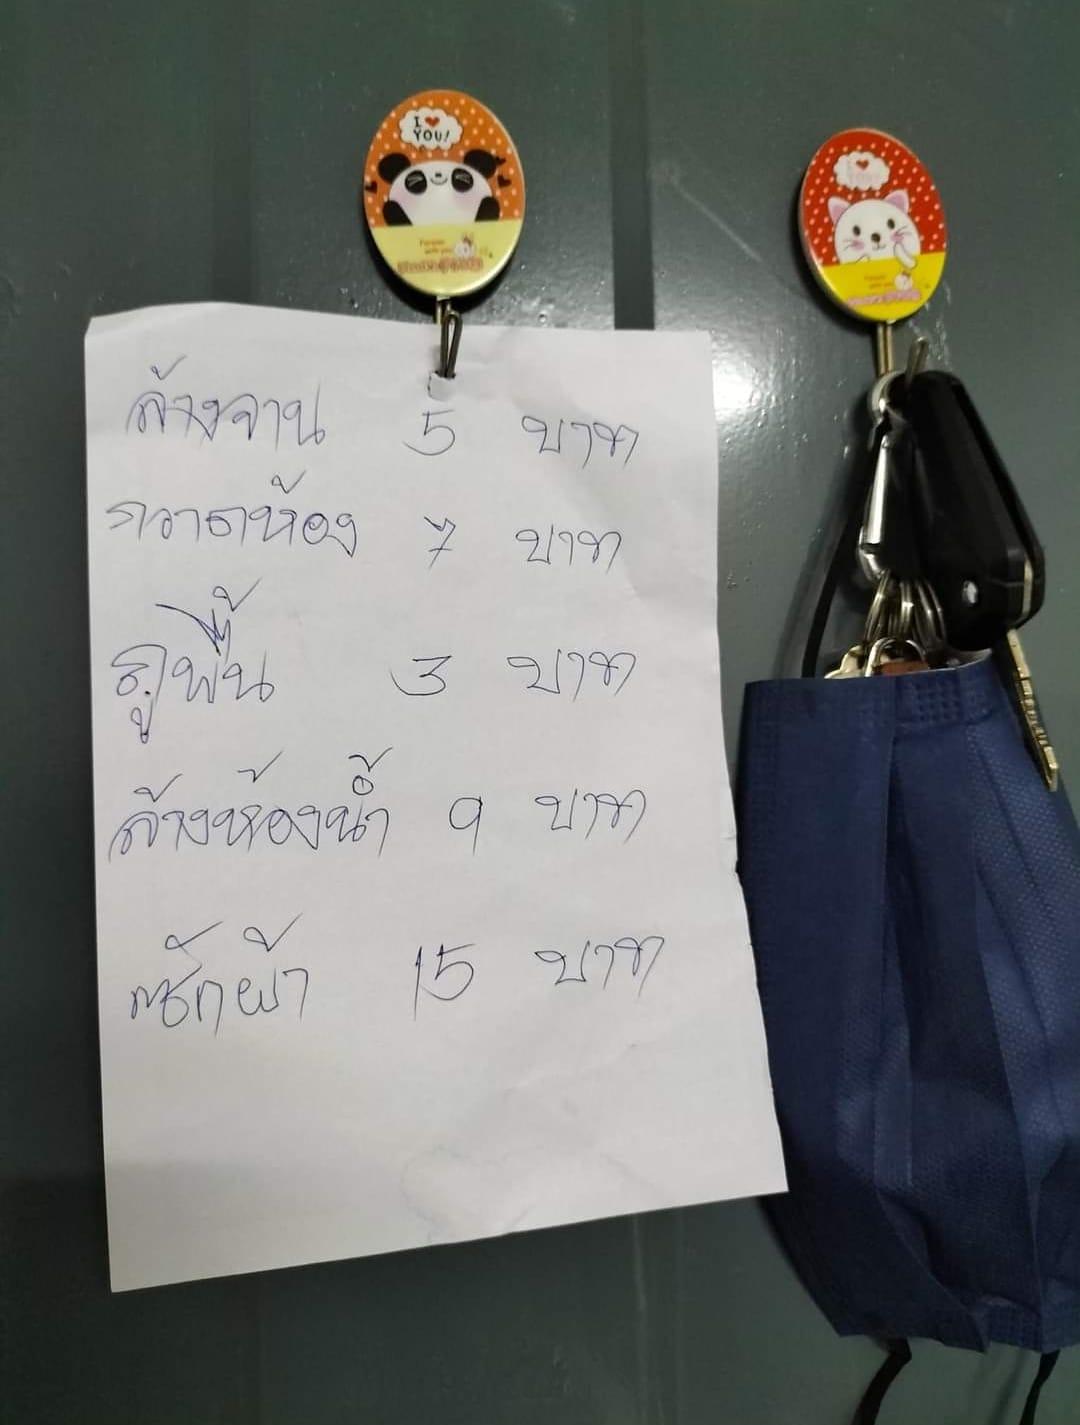 I ❤ YOU!
Forever
with you
ล้างจาน 5 บาท
กวาดห้อง 7 บาท
ถูพื้น 3 บาท
ล้างห้องน้ำ 9 บาท
ซักผ้า 15 บาท